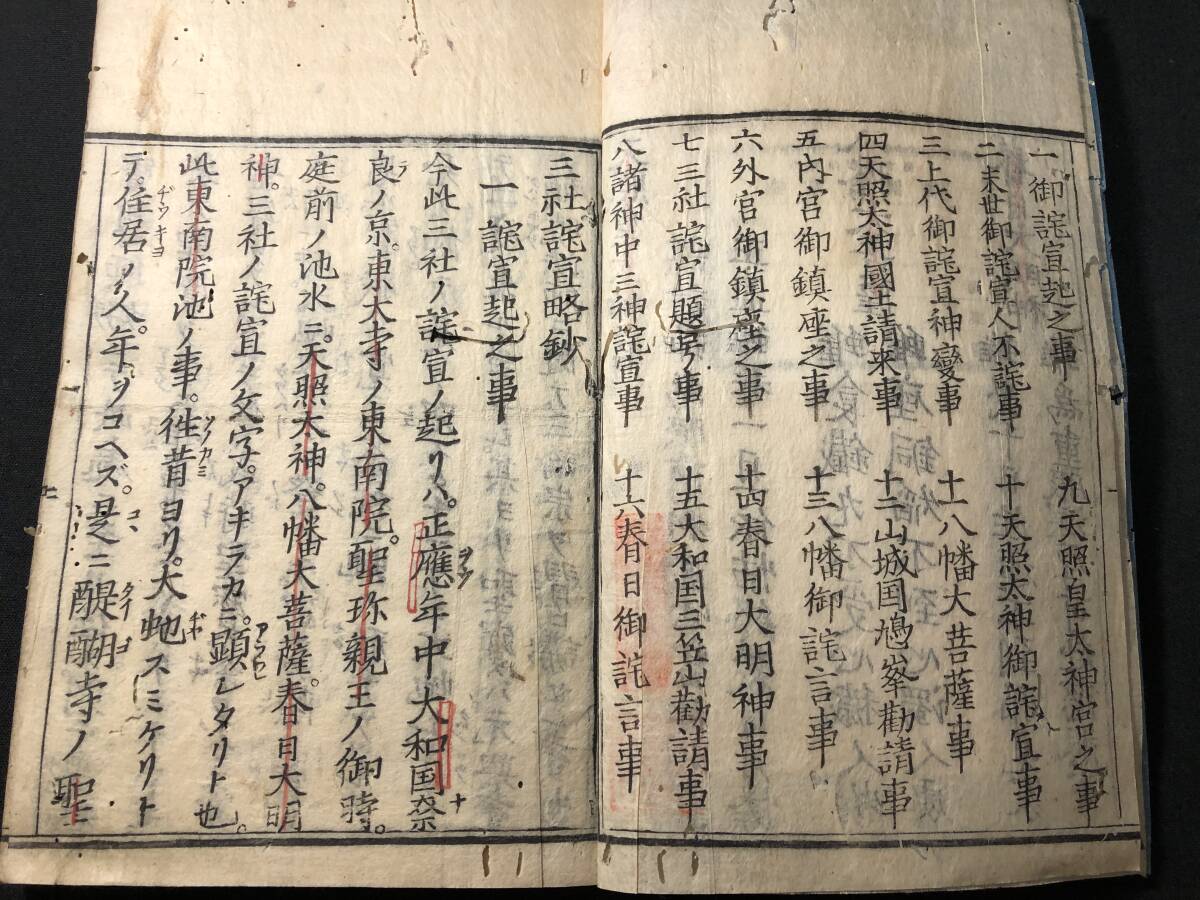 一御詫宣起之事　九天照皇太神宮之事
二末世御詫宣人不詫事　十天照太神御詫宣事
三上代御詫宣神變事　十一八幡大菩薩事
四天照太神國土請来事　十二山城国鳩峯勸請事
五内宮御鎮座之事　十三八幡御詫言事
六外宮御鎮座之事　十四春日大明神事
七三社詫宣題号ノ事　十五大和国三笠山勸請事
八諸神中三神詫宣事　十六春日御詫言事
三社詫宣略鈔
一詫宣起之事
今此三社ノ詫宣ノ起リハ。正應年中大和国奈
良ノ京。東大寺ノ東南院。聖珎親王ノ御時。
庭前ノ池水ニ。天照大神。八幡大菩薩。春日大明
神。三社ノ詫宣ノ文字。アキラカニ。顕レタリト也。
此東南院池ノ事。徃昔ヨリ。大虵スミケリト
テ。住居ノ人年ヲコヘズ。是ニ醍醐寺ノ聖